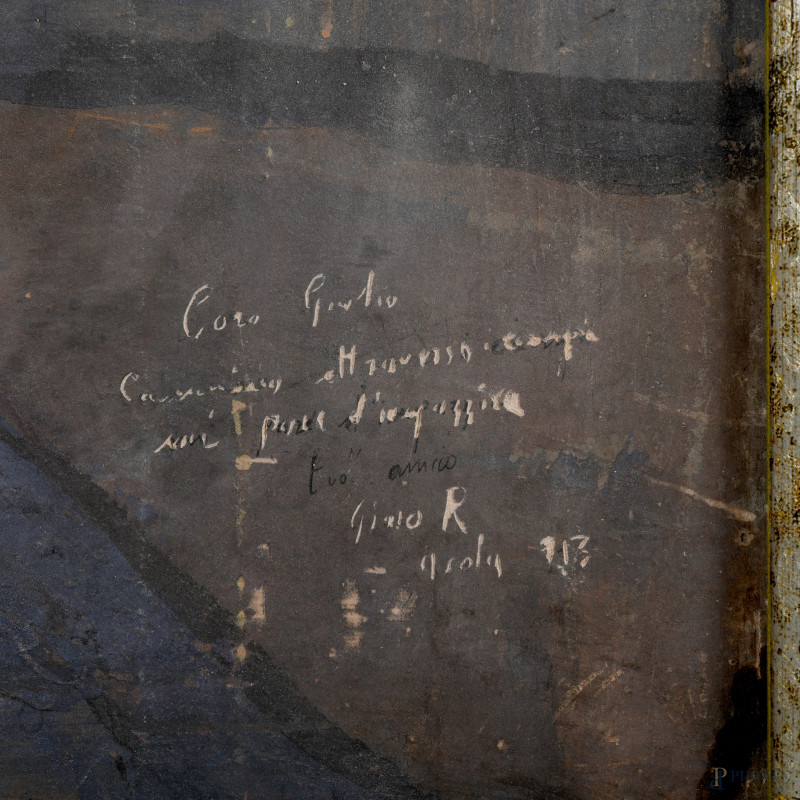 Caro Giulio
Camminando attraverso i campi
mi parea d'impazzire
tuo amico
Gino R
Asola 913